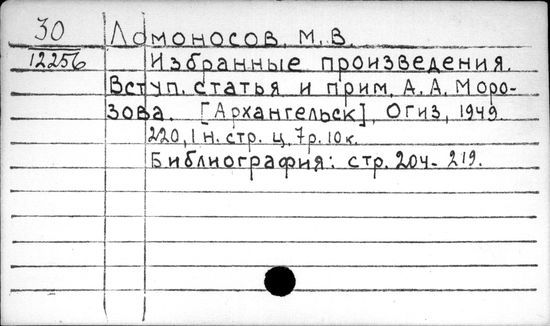 30 Ломоносов, М. В.
12256 Избранные произведения.
Вступ. статья и прим. А. А. Моро-
зова. [Архангельск], Огиз, 1949.
220, 1 н. стр. ц. 7 р. 10 к.
Библиография: стр. 204-219.